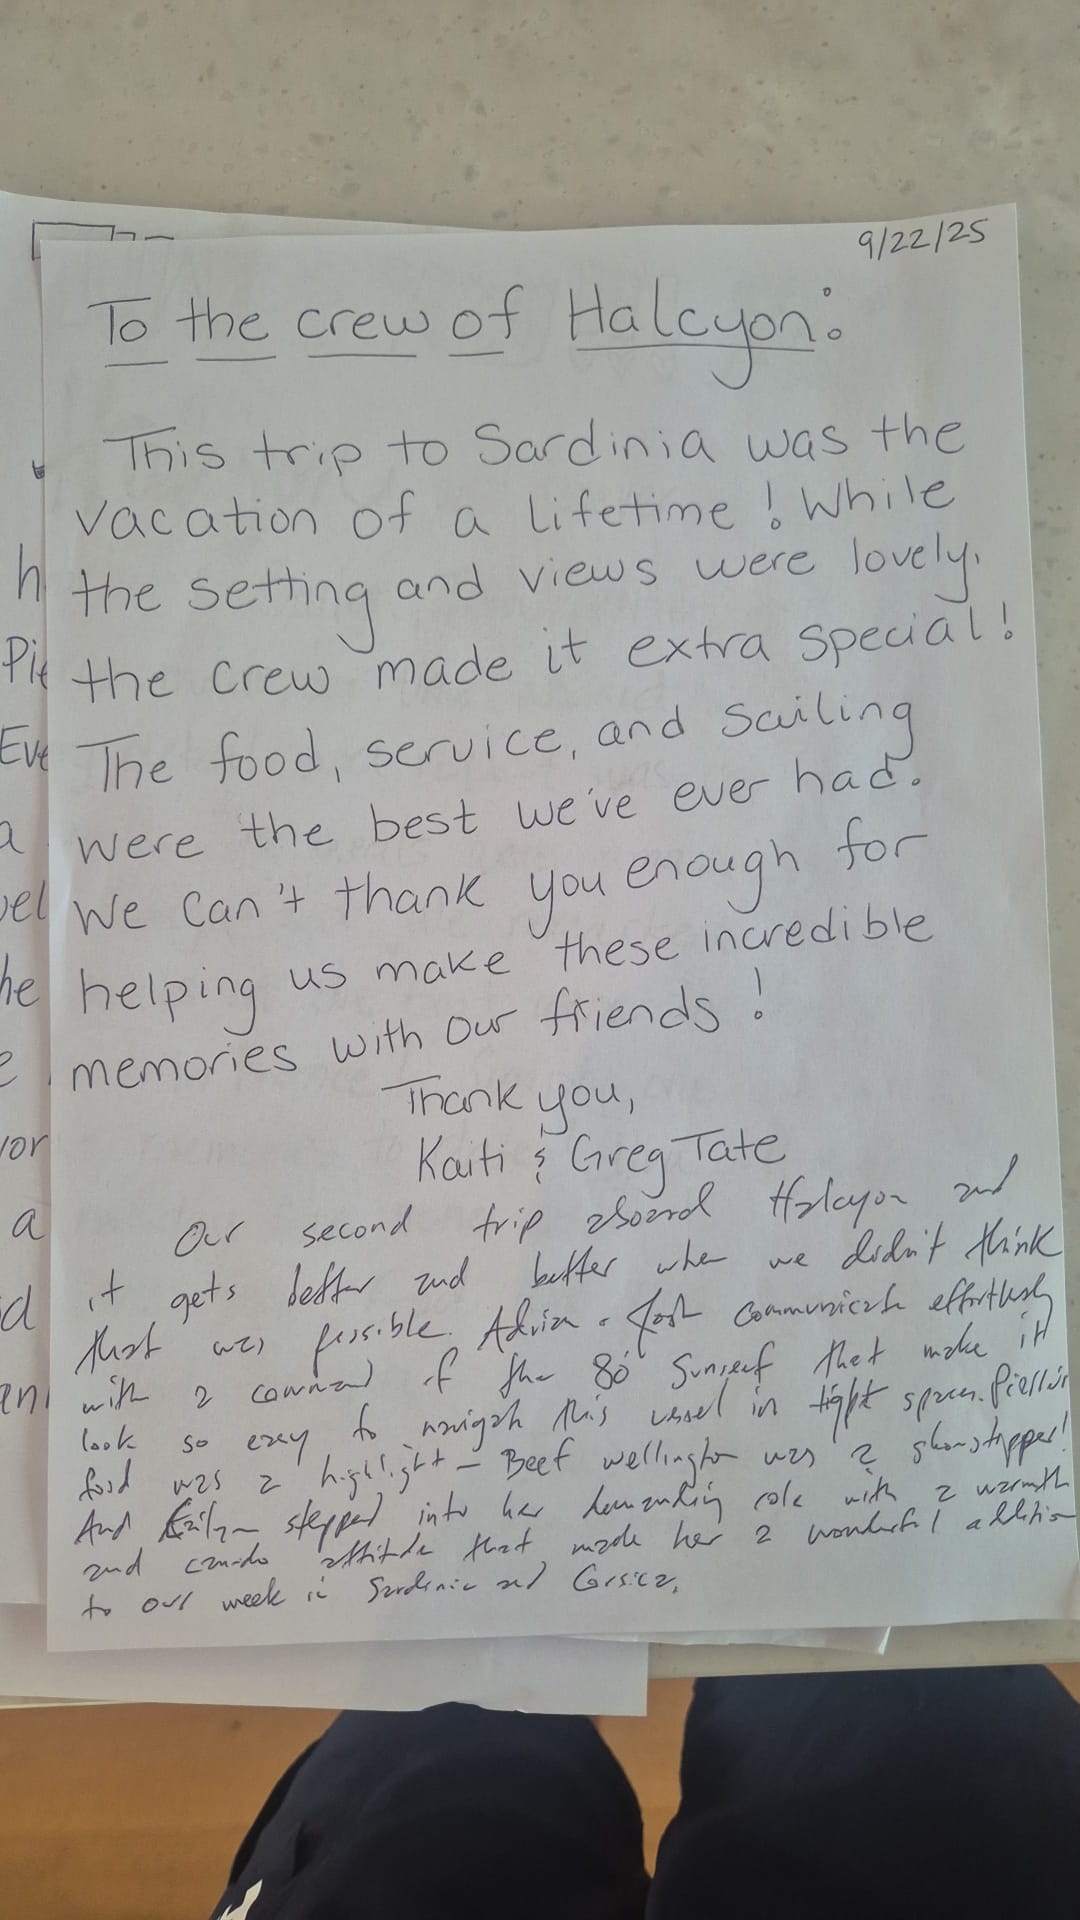 9/22/25
To the crew of Halcyon:
This trip to Sardinia was the
vacation of a lifetime! While
the setting and views were lovely,
the crew made it extra special!
The food, service, and sailing
were the best we've ever had.
We can't thank you enough for
helping us make these incredible
memories with our friends!
Thank you,
Kaiti & Greg Tate
Our second trip aboard Halcyon and
it gets better and better when we didn't think
that was possible. communicate effortlessly
with a command of the 80' Sunreef that make it
look so easy to navigate this vessel in tight spaces.
food was a highlight – Beef wellington was a showstopper!
And stepped into her demanding role with a warmth
and can-do attitude that made her a wonderful addition
to our week in Sardinia and Corsica.
h
Pie
Eve
a
vel
he
e
vor
a
d
an